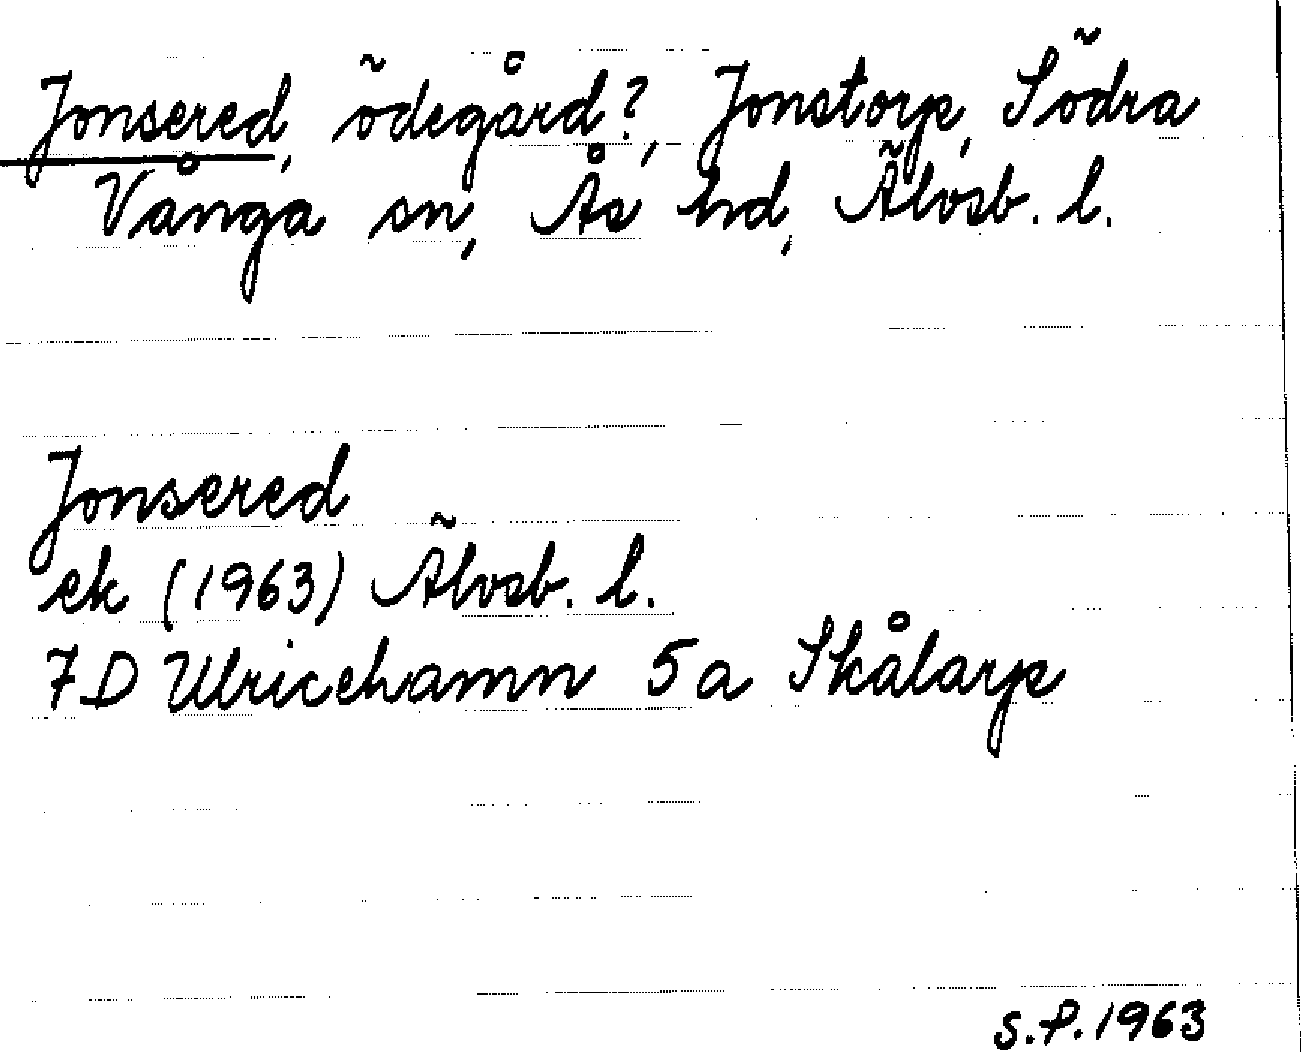 Jonsered, ödegård?, Jonstorp, Södra
Vånga sn, Ås hd, Älvsb. l.
Jonsered
ek (1963) Älvsb. l.
7D Ulricehamn 5a Skålarp
S.P. 1963